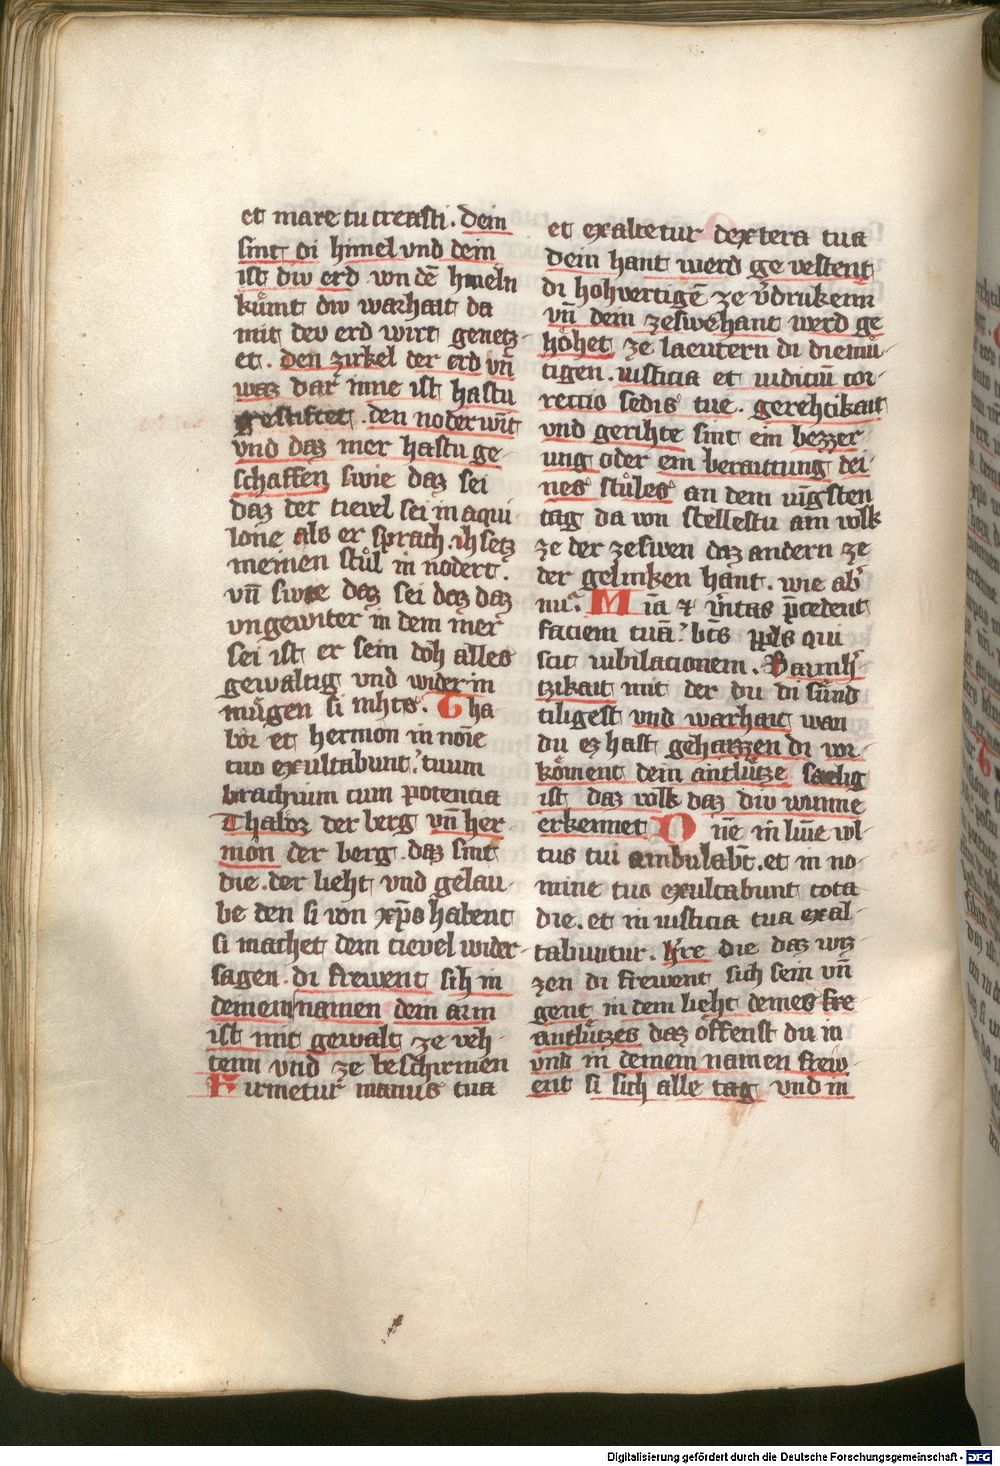 et mare tu creasti. Dein
sint di himel vnd dein
ist div erd von dē himeln
kůmt div warhait da
mit dev erd wirt genetz
et. den zirkel der erd vn̄
waz dar inne ist hastu
gestiftet. den norderwīt
vnd daz mer hastu ge
schaffen swie daz sei
daz der tievel sei in aqui
lone als er sprach. ih setz
meinen stůl in nodert.
vn̄ swie daz sei daz daz
vngewiter in dem mer
sei ist er sein doh alles
gewaltig vnd wider in
mügen si nihts. Tha
bor et hermon in noīe
tuo exultabunt. tuum
brachium cum potencia
Thabor der berg vn̄ her
mon der berg. daz sint
die. der lieht vnd gelau
be den si von xp̄o habent
si machet dem tievel wider
sagen. di frewent sih in
deinem namen dein arm
ist mit gewalt ze veh
tenn vnd ze beschirmen
Firmetur manus tua
et exaltetur dextera tua
dein hant werd ge vestent
di hohvertigē ze v̓drukenn
vn̄ dein zeswe hant werd ge
höhet ze laeutern di diemü
tigen. iusticia et iudiciū cor
reccio sedis tue. gerehtikait
vnd gerihte sint ein bezzer
ung oder ein beraittung dei
nes stůles an dem iūgsten
tag da von stellestu ain volk
ze der zeswen daz andern ze
der gelinken hant. wie ab̓
Mīa et v̓itas p̄cedent
faciem tuā. bt̄s ppl̄s qui
scit iubilacionem. Barmh̓
tzikait mit der du di sünd
tiligest vnd warhait wan
du ez hast gehaizzen di vor
köment dein antlütze saelig
ist daz volk daz div wunne
erkennet Dn̄e in lūīe vl
tus tui ambulab̄t. et in no
mine tuo exultabunt tota
die. et in iusticia tua exal
tabuntur. h̓re die daz wiz
zen di frewent sich sein vn̄
gent in dem lieht deines
antlützes daz offenst du in
vnd in deinem namen frew
ent si sich alle tag vnd in
Digitalisierung gefördert durch die Deutsche Forschungsgemeinschaft - DFG